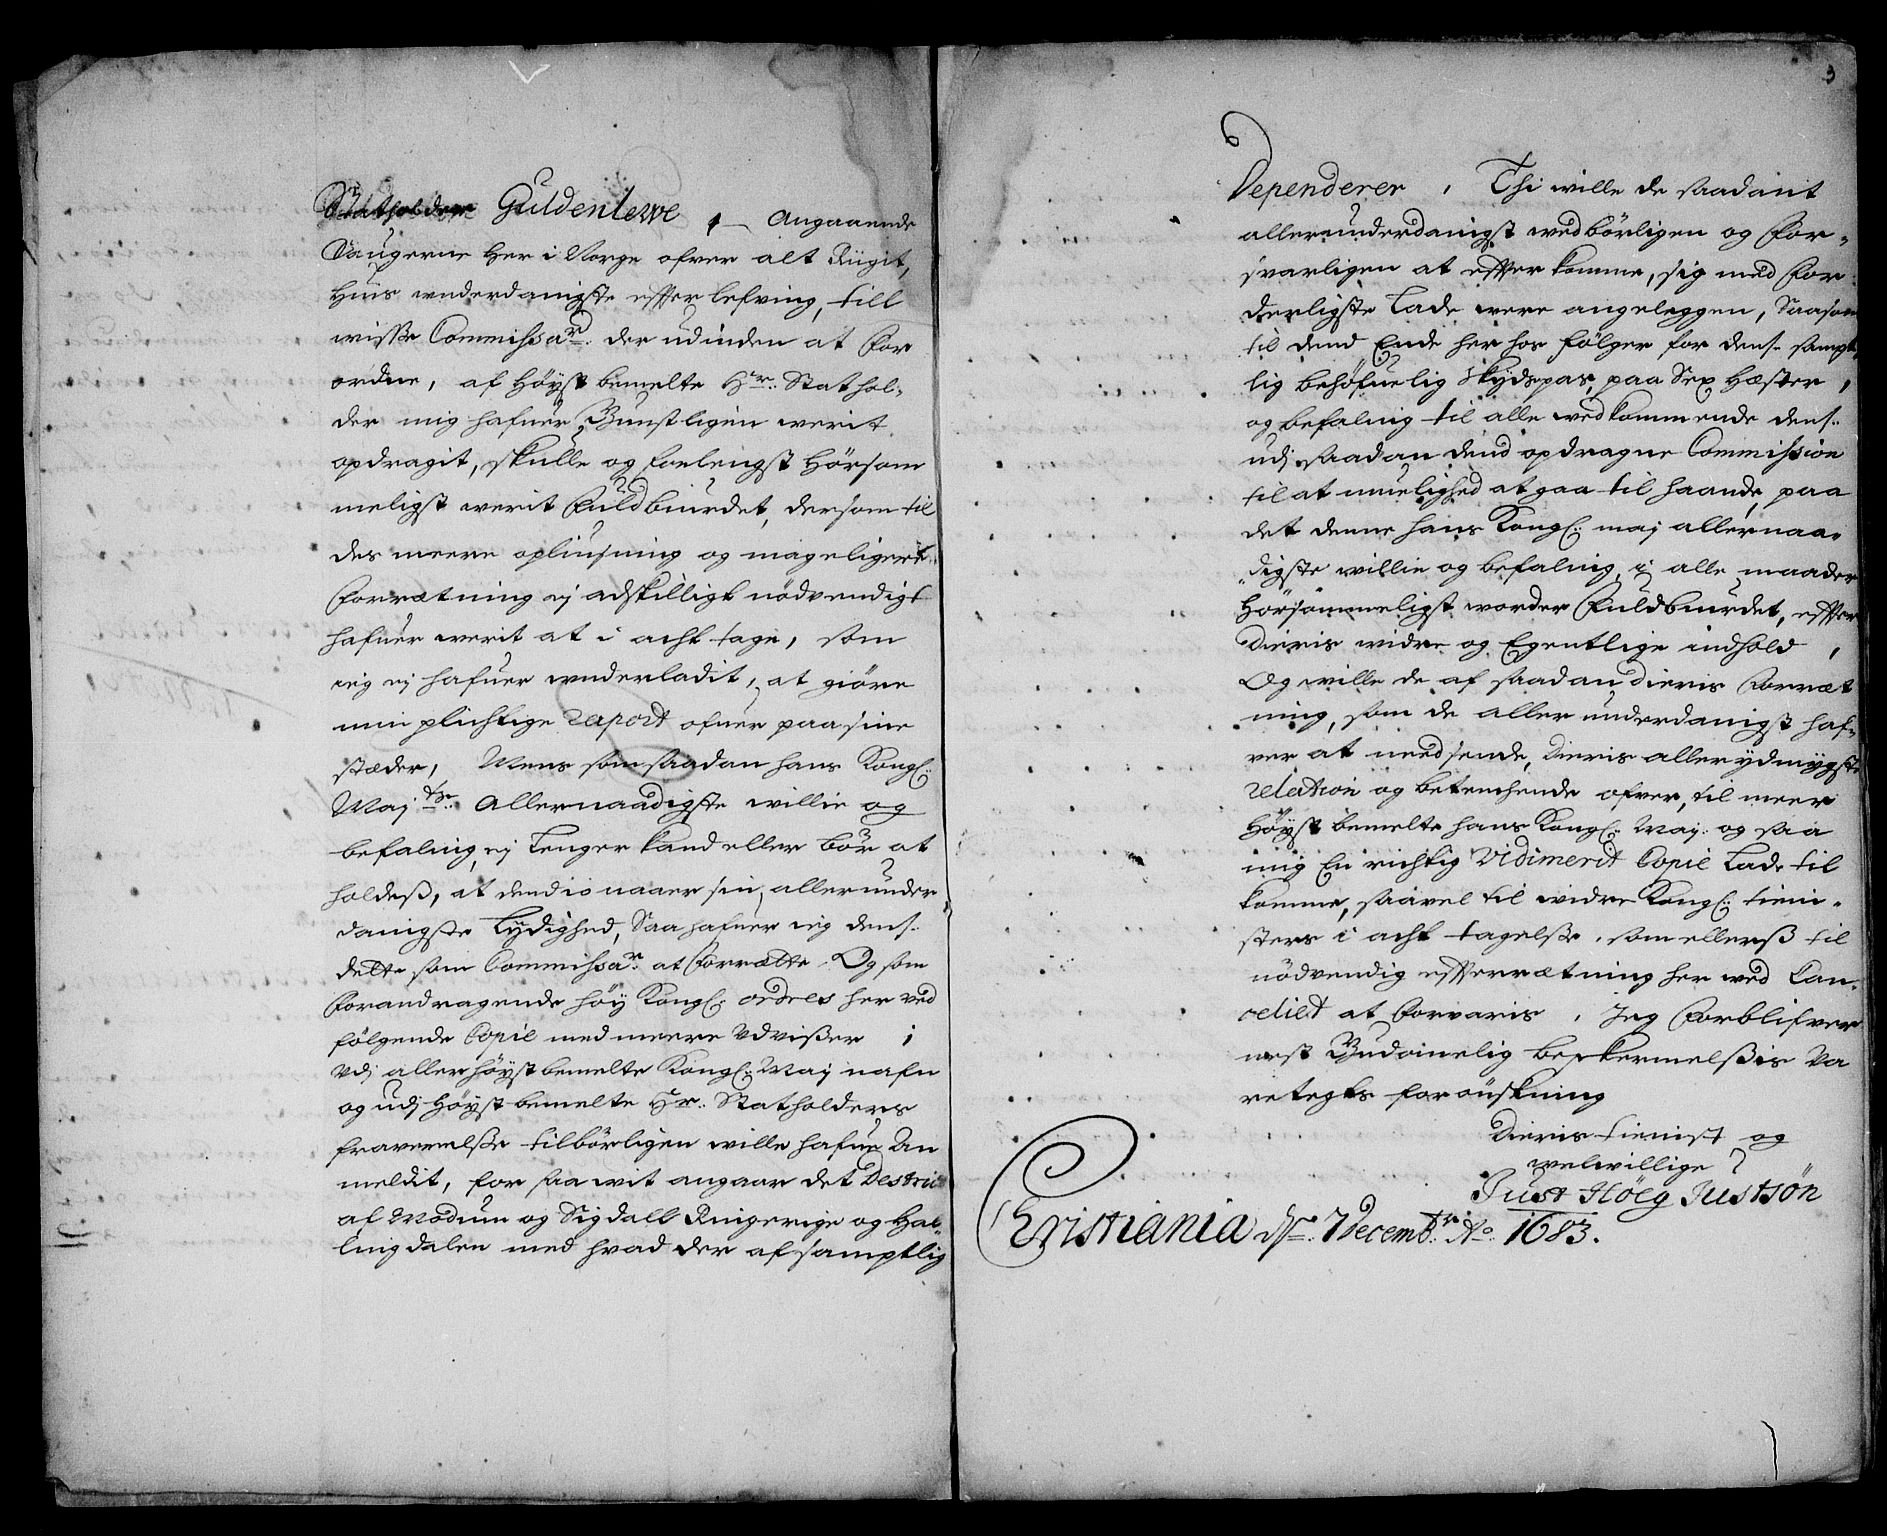 Statholder Guldenlewe, Angaaende
Saugerne her i Norge ofver alt Riigit,
Huis underdanigste effterlefving, till
wisse Commissar. der udinden at For
ordne, af Høyst bemelte Hr. Stathol-
der mig hafuer Gunstligen werit
opdragit, skulle og forlengst Hørsom
meligst werit Fuldbiurdet, dersom til
des meere opliusning og mageligere
Forrætning ej adskilligt nödvendigt
hafuer werit at i acht tage, som
ieg ej hafuer underladit, at giöre
min plichtige raport ofuer paa sine
stæder, Mens som saadan hans Kongl:
Maj:ts Allernaadigste willie og
befaling, ej Lenger kand eller bör at
holdeß, at dend io naaer sin allerunder
danigste Lydighed, Saa hafuer ieg dens.
dette som Commissar: at Forrætte. Og som
Forandragende höy Kongl: ordres her ved
fölgende Copie med meere Udvißer
Udj allerhöyst bemelte Kongl: Maj nafn
og udj Höyst bemelte Hr: Statholders
fraverelße tilbörligen wille hafue An
meldit, for saa wit angaar det Destrict
af Modum og Sigdall Ringerige og Hal-
lingdalen med hvad der af samptlig
3
Dependerer, Thi wille de saadant
allerunderdanigst wedbörligen og For-
svarligen at effterkomme, sig med For-
derligste Lade were angeleggen, Saasom
til dend Ende her hos fölger for dens. sampt
lig behöfuelig Skydspas, paa Sex Hæster,
og befaling til alle wedkommende dens.
udj saadan dend opdragne Commission
til at muelighed at gaa til haande, paa
det denne hans Kongl: maj allernaa-
digste willie og befaling, i alle maader
Hörsommeligst worder Fuldbiurdet, effter
Dieris widre og Egentlige indhold,
Og wille de af saadan dieris Forræt
ning, som de aller underdanigst haf-
ver at needsende, Dieris allerydmygste
relation og betenchende ofver, til meer
Höyst bemelte hans Kongl: Maj: og saa
mig En richtig Vidimerit Copie Lade til
komme, saavel til widre Kongl: tieni-
steres i acht tagelße, som ellerß til
nödvendig effterrætning her wed Can-
celiet at forvaris, Jeg Forblifver
nest Gudomelig beskermelßis Va
retegts forönskning
Dieris tienist og
welwillige
Just Höeg Justsön
Cristiania d. 7 Decemb:r Ao: 1683.